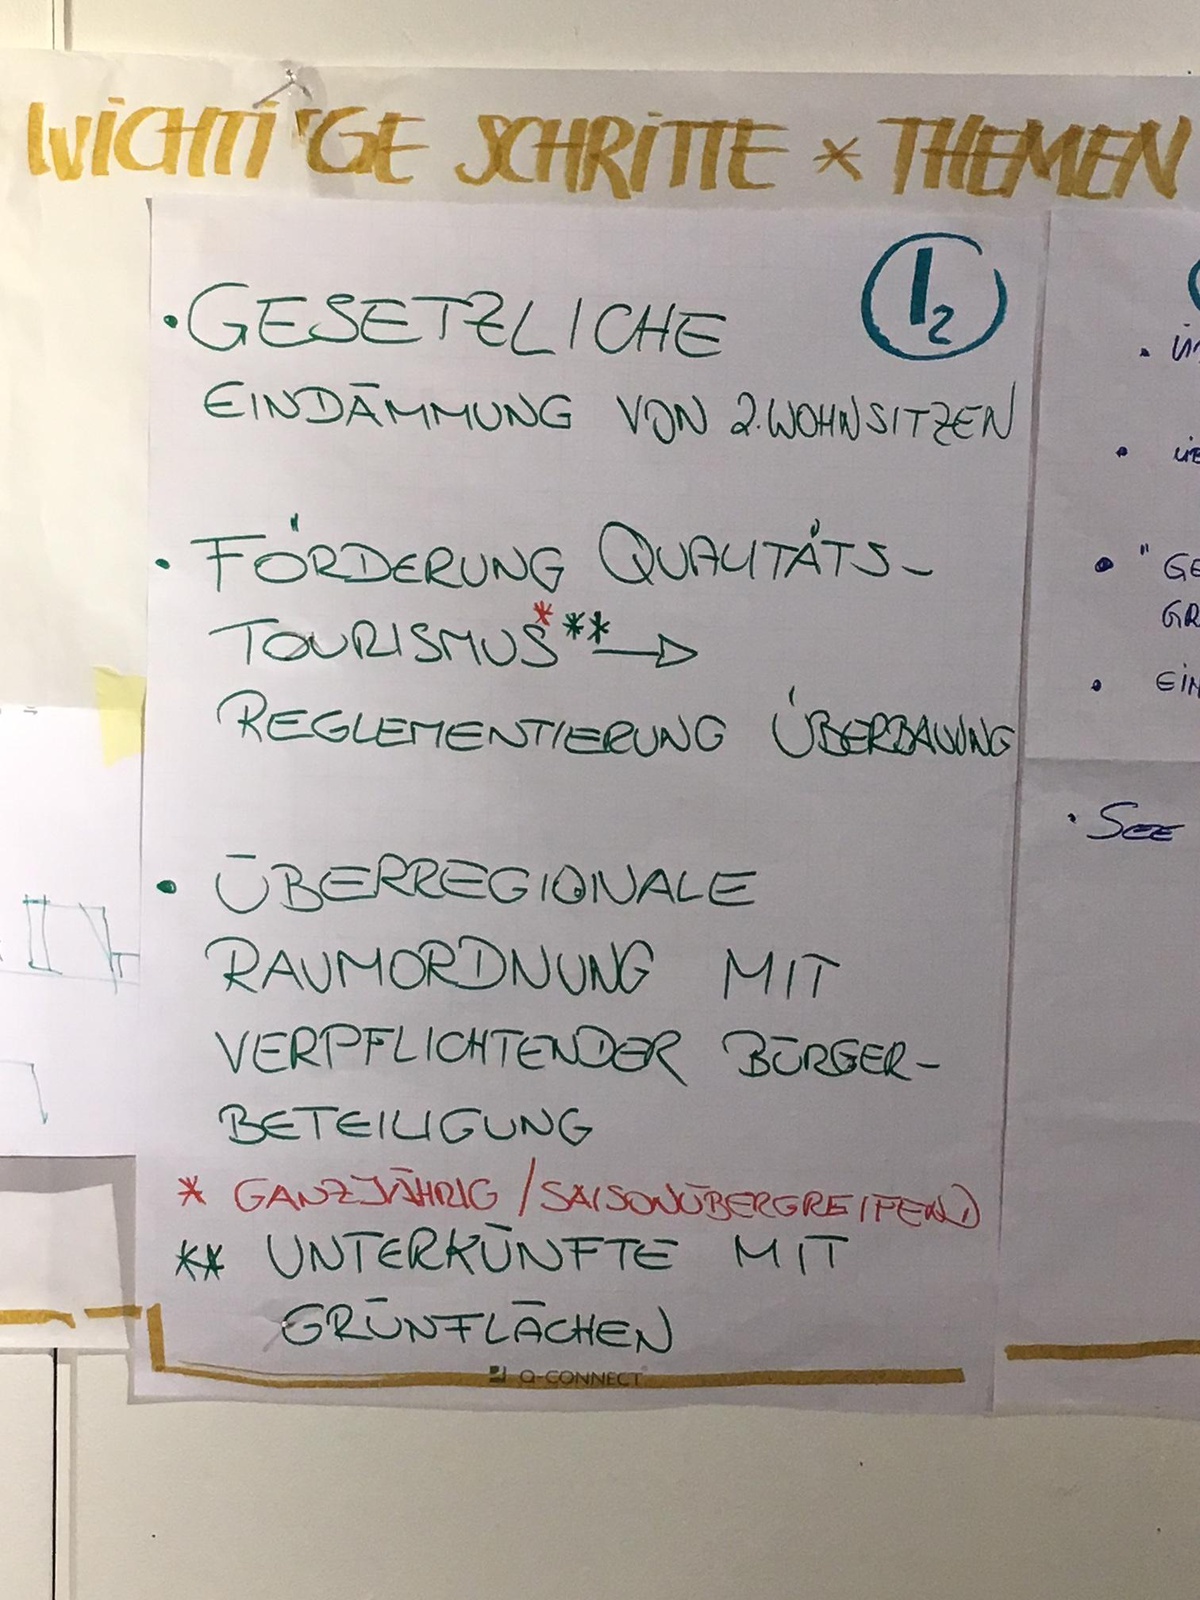 WICHTIGE SCHRITTE × THEMEN
1₂
• GESETZLICHE
EINDÄMMUNG VON 2.WOHNSITZEN
• FÖRDERUNG QUALITÄTS-
TOURISMUS* **→
REGLEMENTIERUNG ÜBERBAUUNG
• ÜBERREGIONALE
RAUMORDNUNG MIT
VERPFLICHTENDER BÜRGER-
BETEILIGUNG
* GANZJÄHRIG / SAISONÜBERGREIFEND
** UNTERKÜNFTE MIT
GRÜNFLÄCHEN
Q-CONNECT
• " GE
GR
• EIN
• SEE